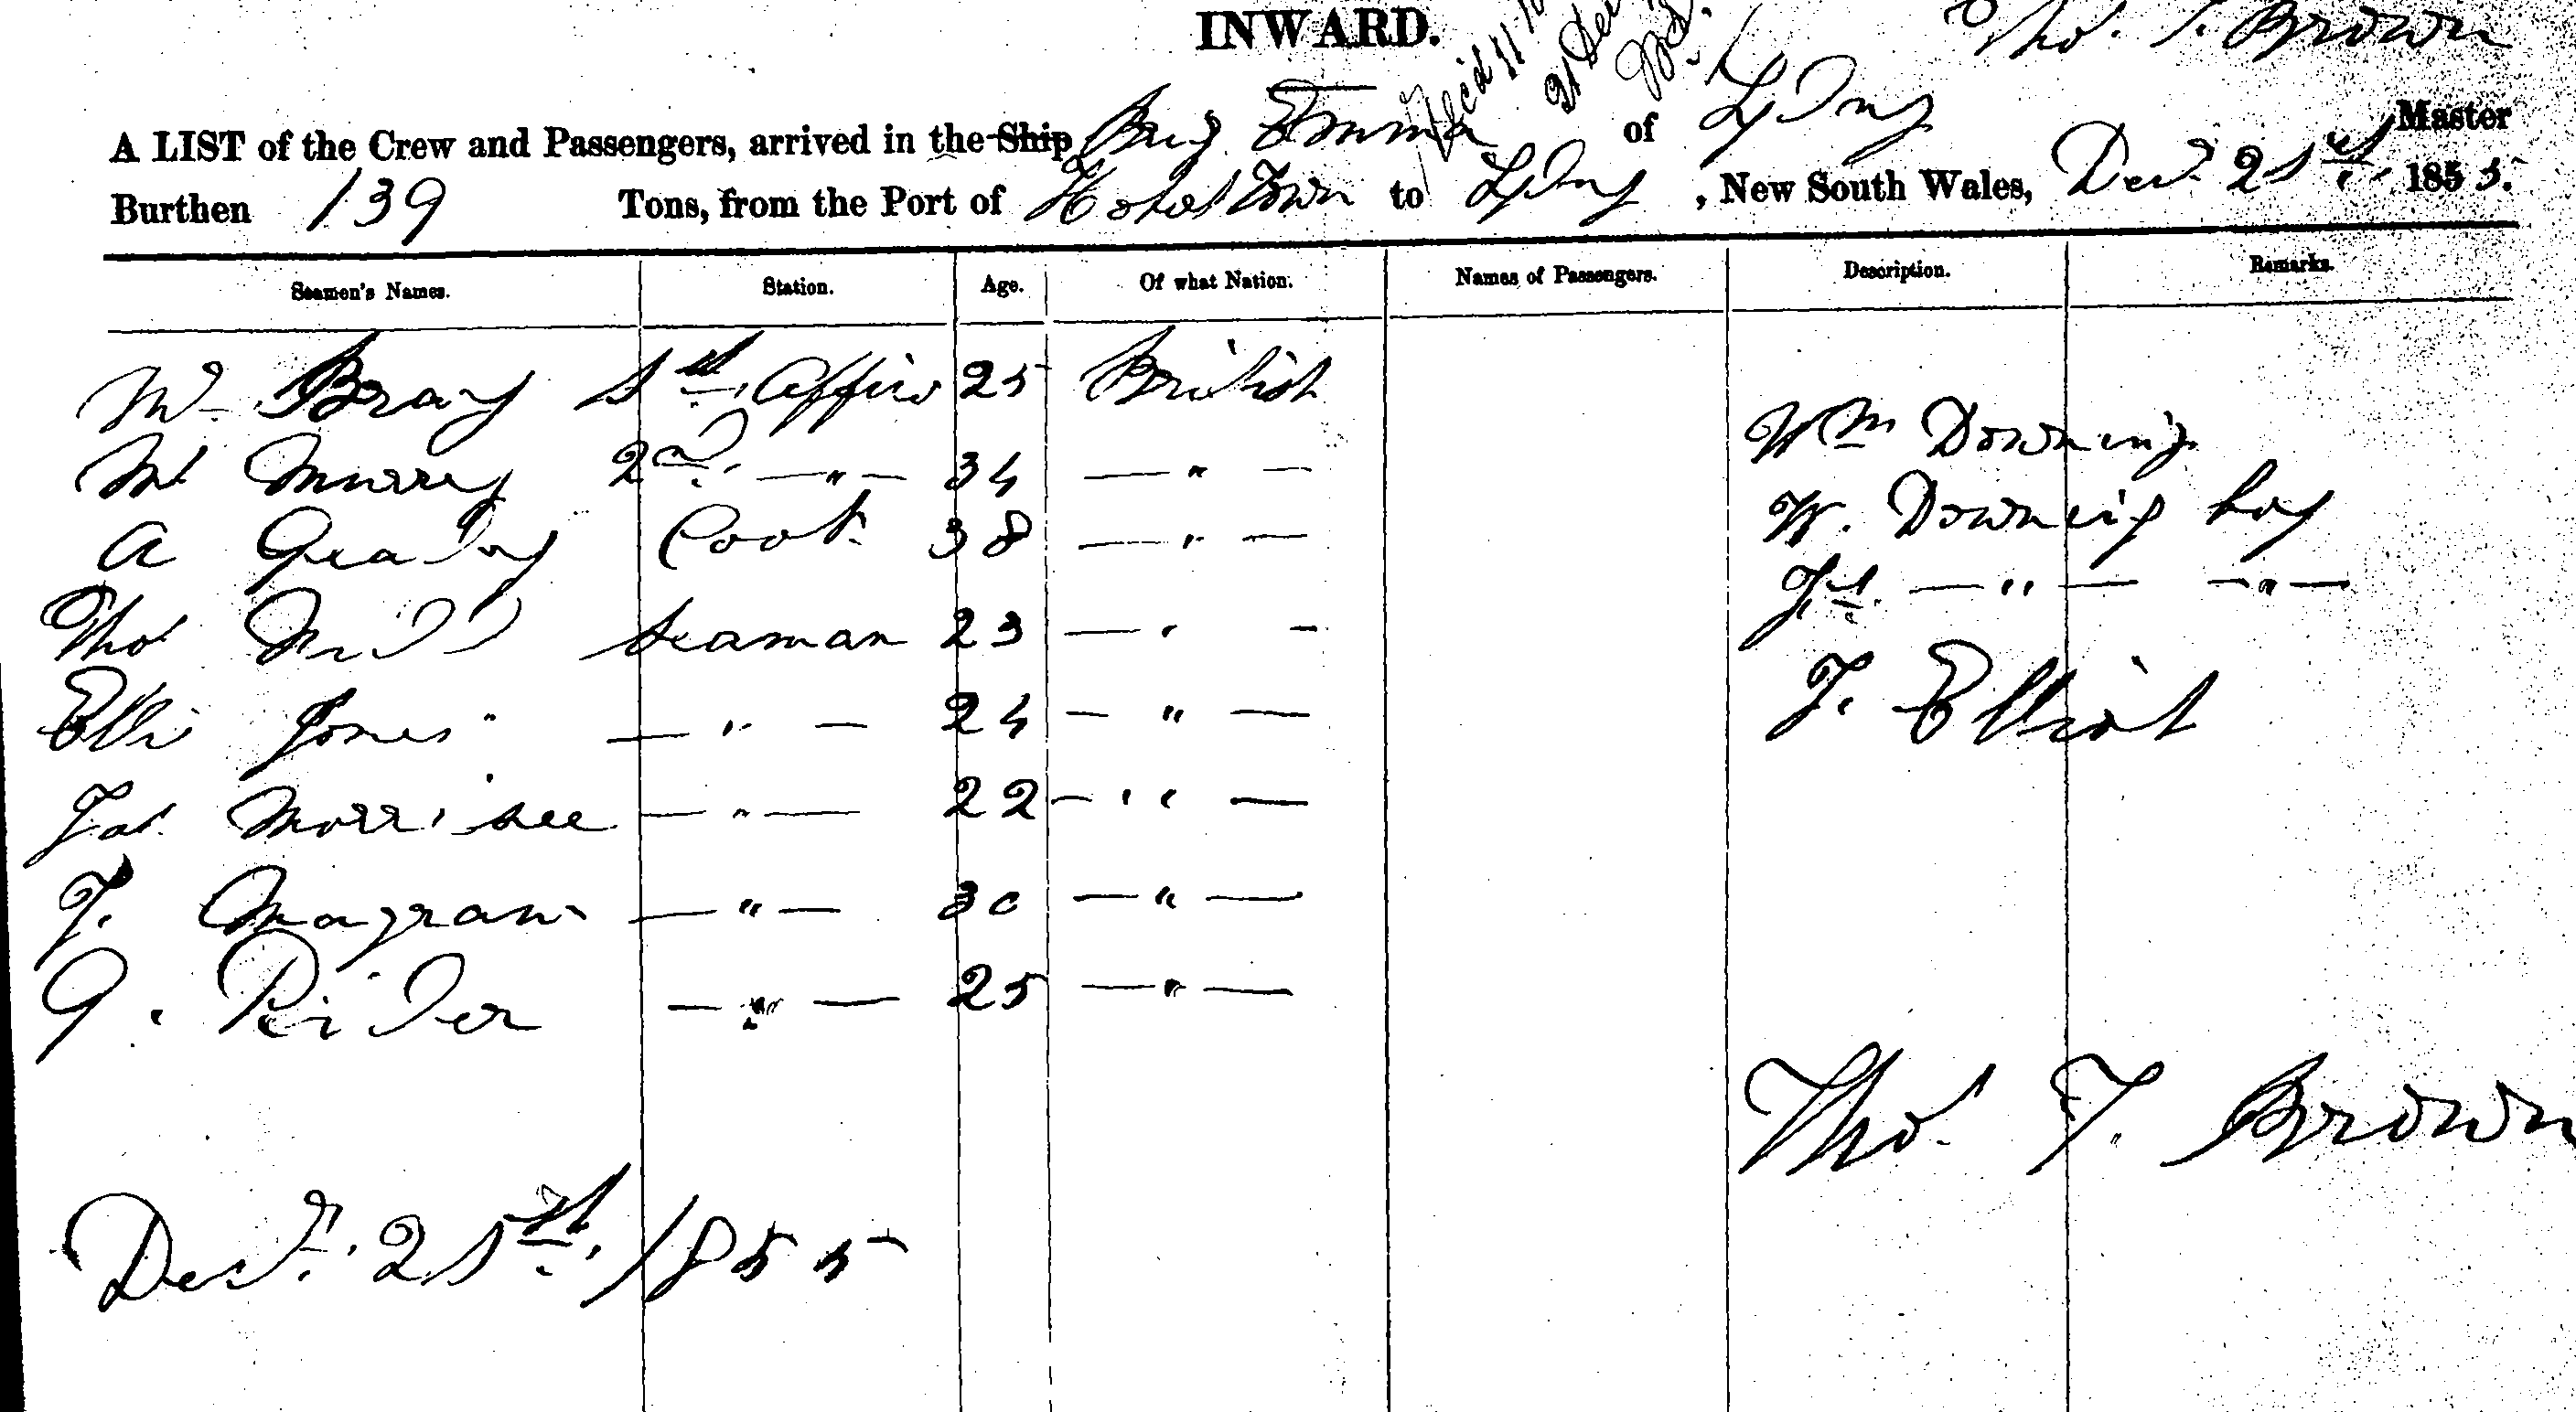 INWARD.
Thos. T. Brown
A LIST of the Crew and Passengers, arrived in the Ship Brig Emma of Sydney Master
Burthen 139 Tons, from the Port of Hobart Town to Sydney, New South Wales, Decr. 21st. 1855.
Seamen's Names. Station. Age. Of what Nation. Names of Passengers. Description. Remarks.
Bray 1st. Officer 25 British
Wm Downing
Murrey 2nd. —"— 34 —"—
W. Downing boy
A Cook 38 —"—
—"— —"—
Thos Seaman 23 —"—
T. Elliot
Ellis Jones —"— 24 —"—
Jas. Morrisee —"— 22 —"—
T. Magran —"— 30 —"—
G. Rider —"— 25 —"—
Thos. T. Brown
Decr. 21st. 1855